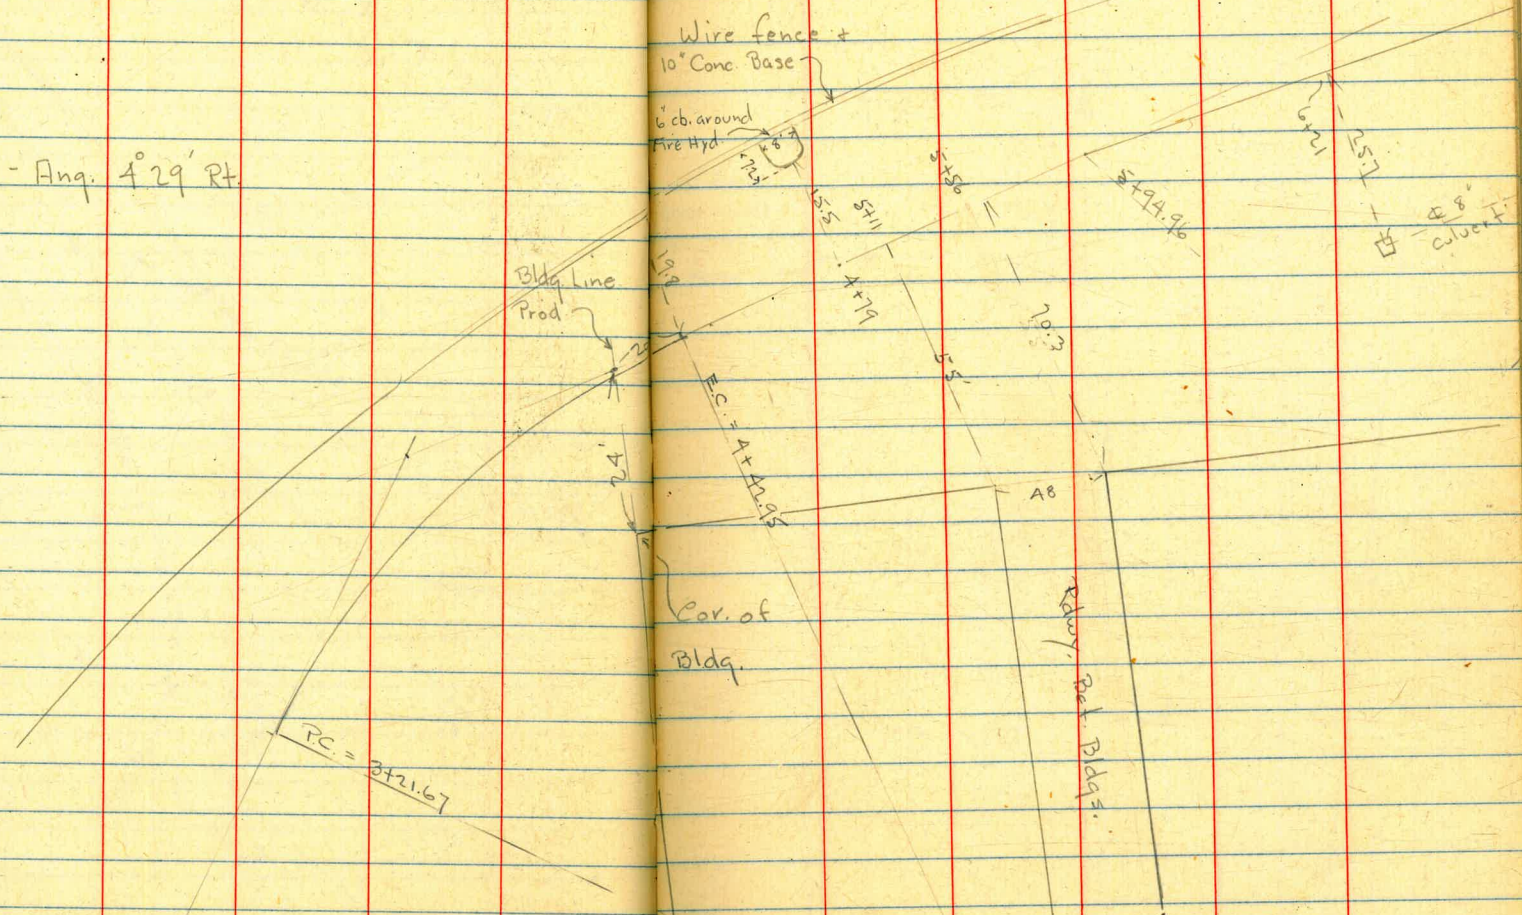 - Ang. 4° 29' Rt.
Wire fence +
10" Conc. Base
6" cb. around
Fire Hyd.
8'
15.5
5+11
4+79
5+56
5+94.96
6+21
25.7
8"
culvert
Bldg. Line
Prod
19.8
20
24'
E.C. = 4+42.95
55'
70.3
A8
Cor. of
Bldg.
Rdwy. Bet. Bldgs.
P.C. = 3+21.67